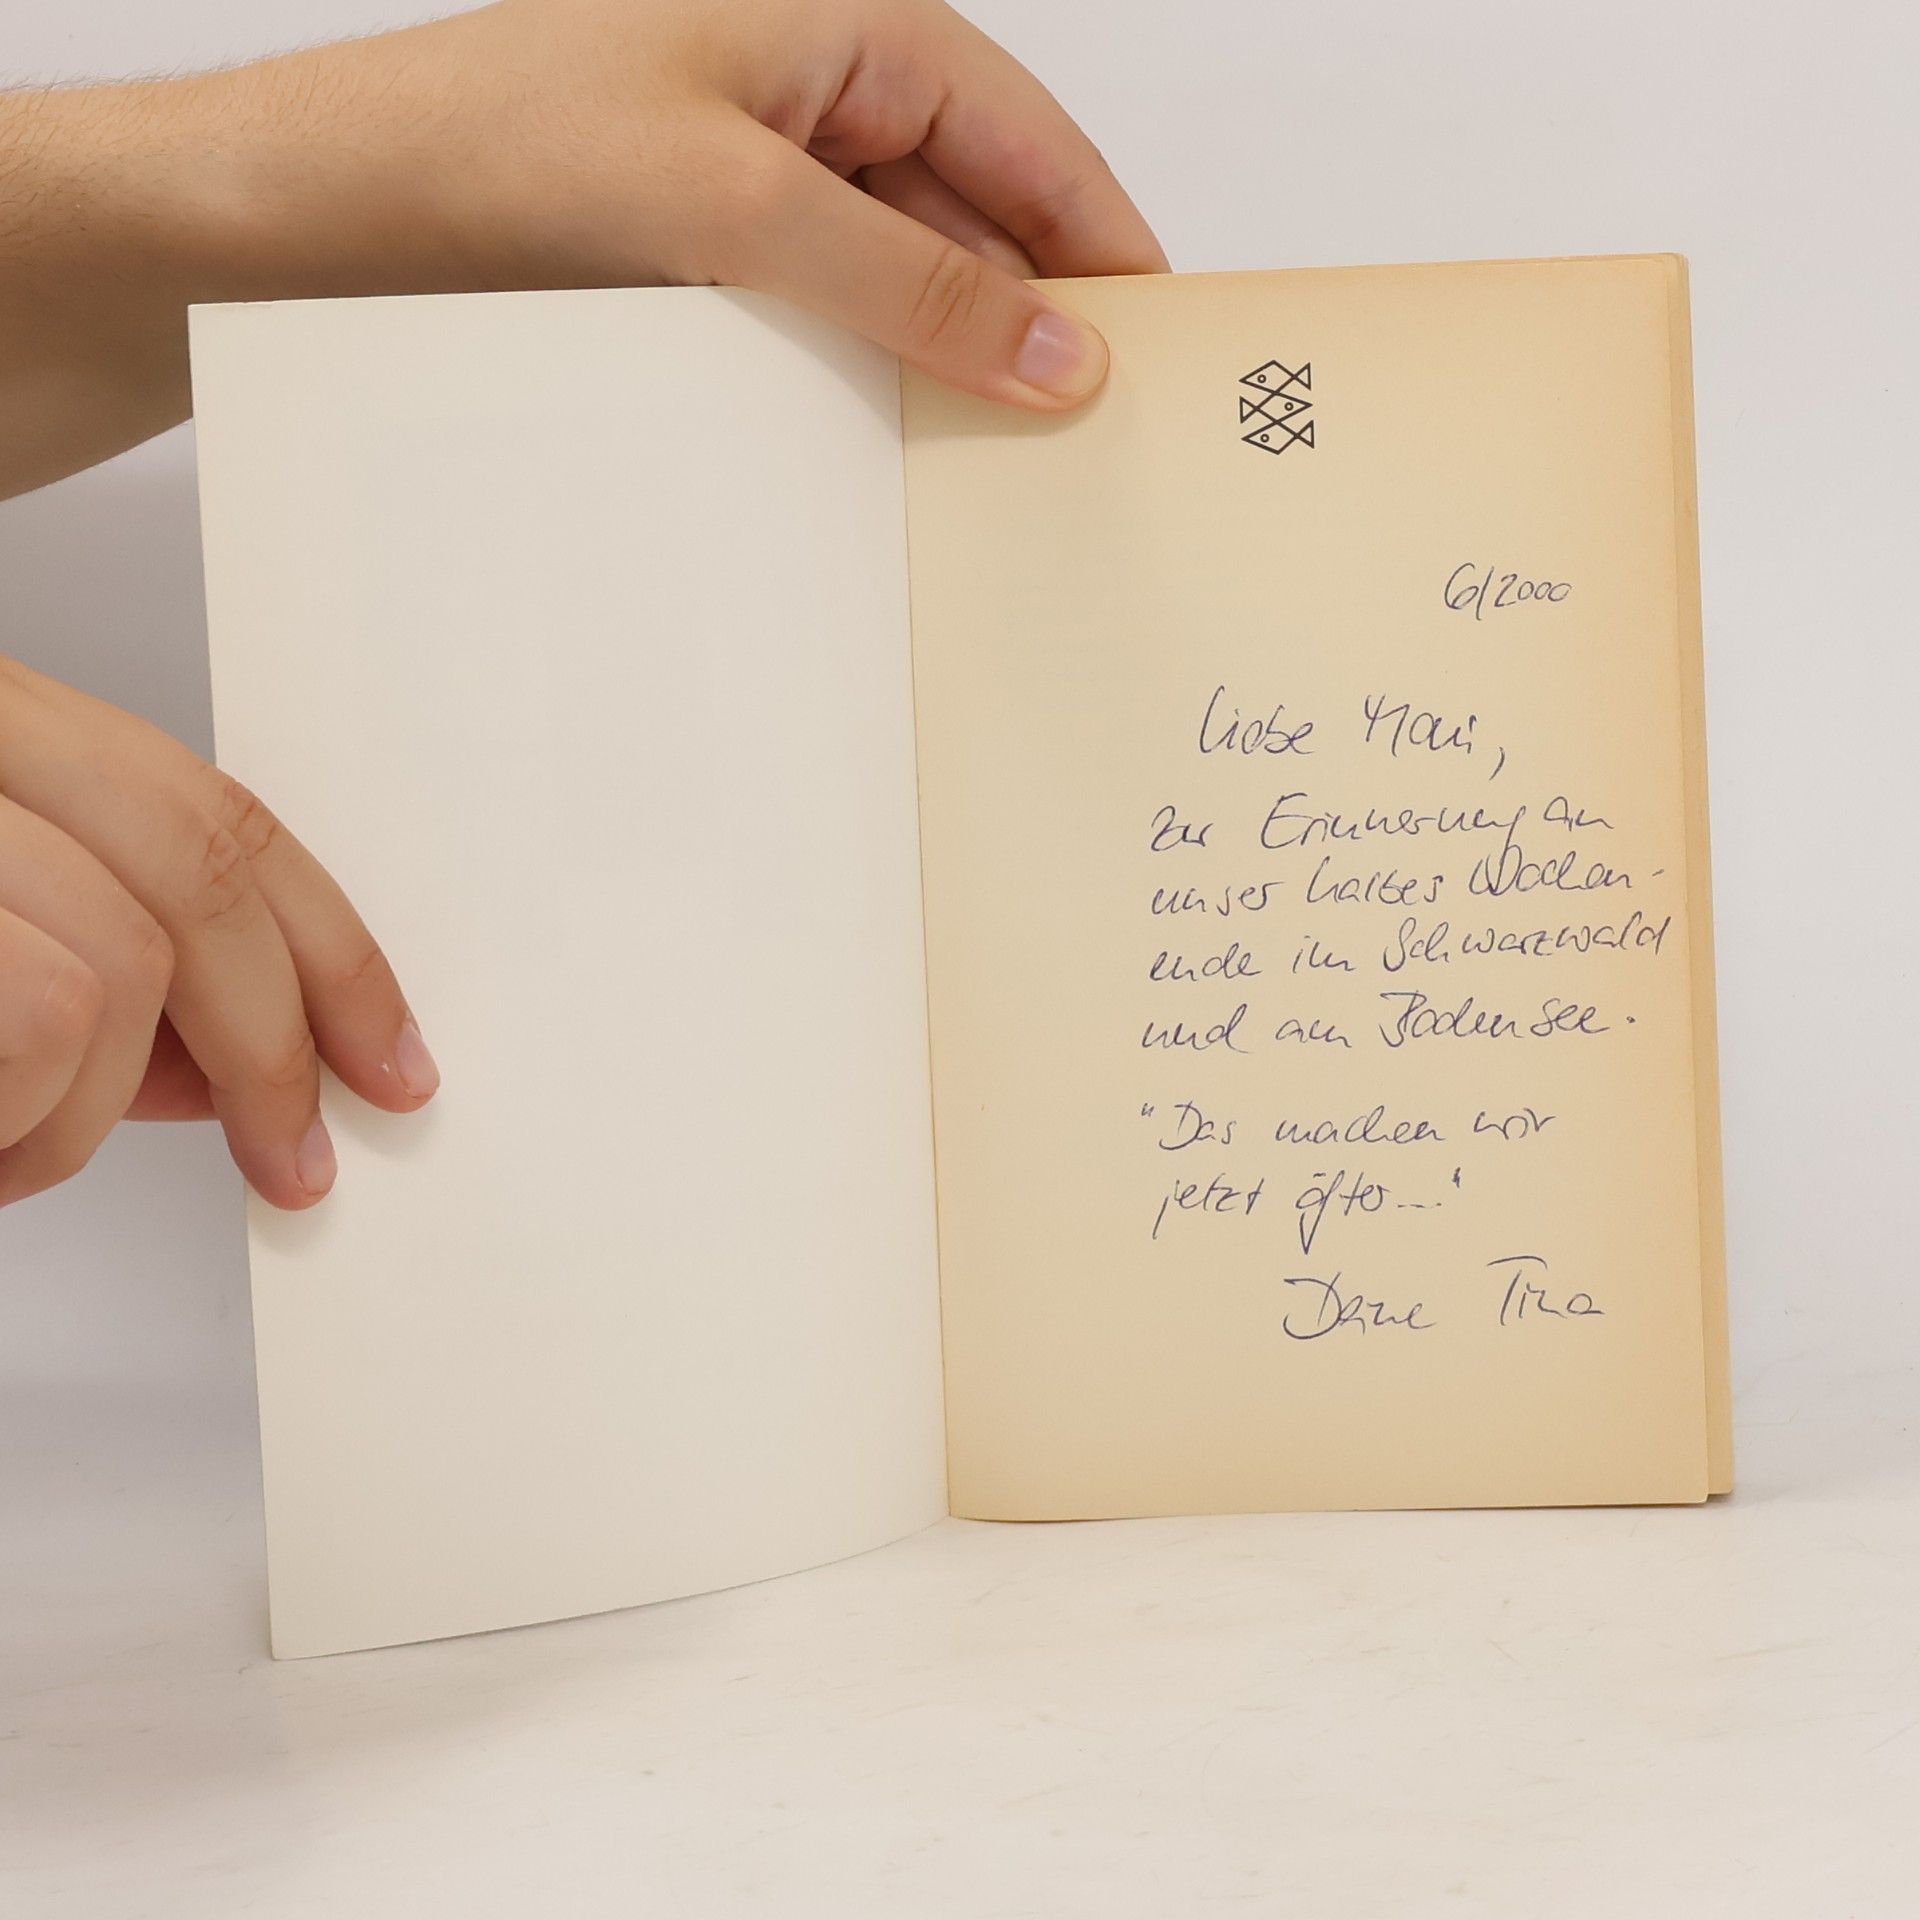 6/2000
Liebe Mari,
zur Erinnerung an
unser halbes Wochen-
ende im Schwarzwald
und am Bodensee.
"Das machen wir
jetzt öfter...."
Deine Tina